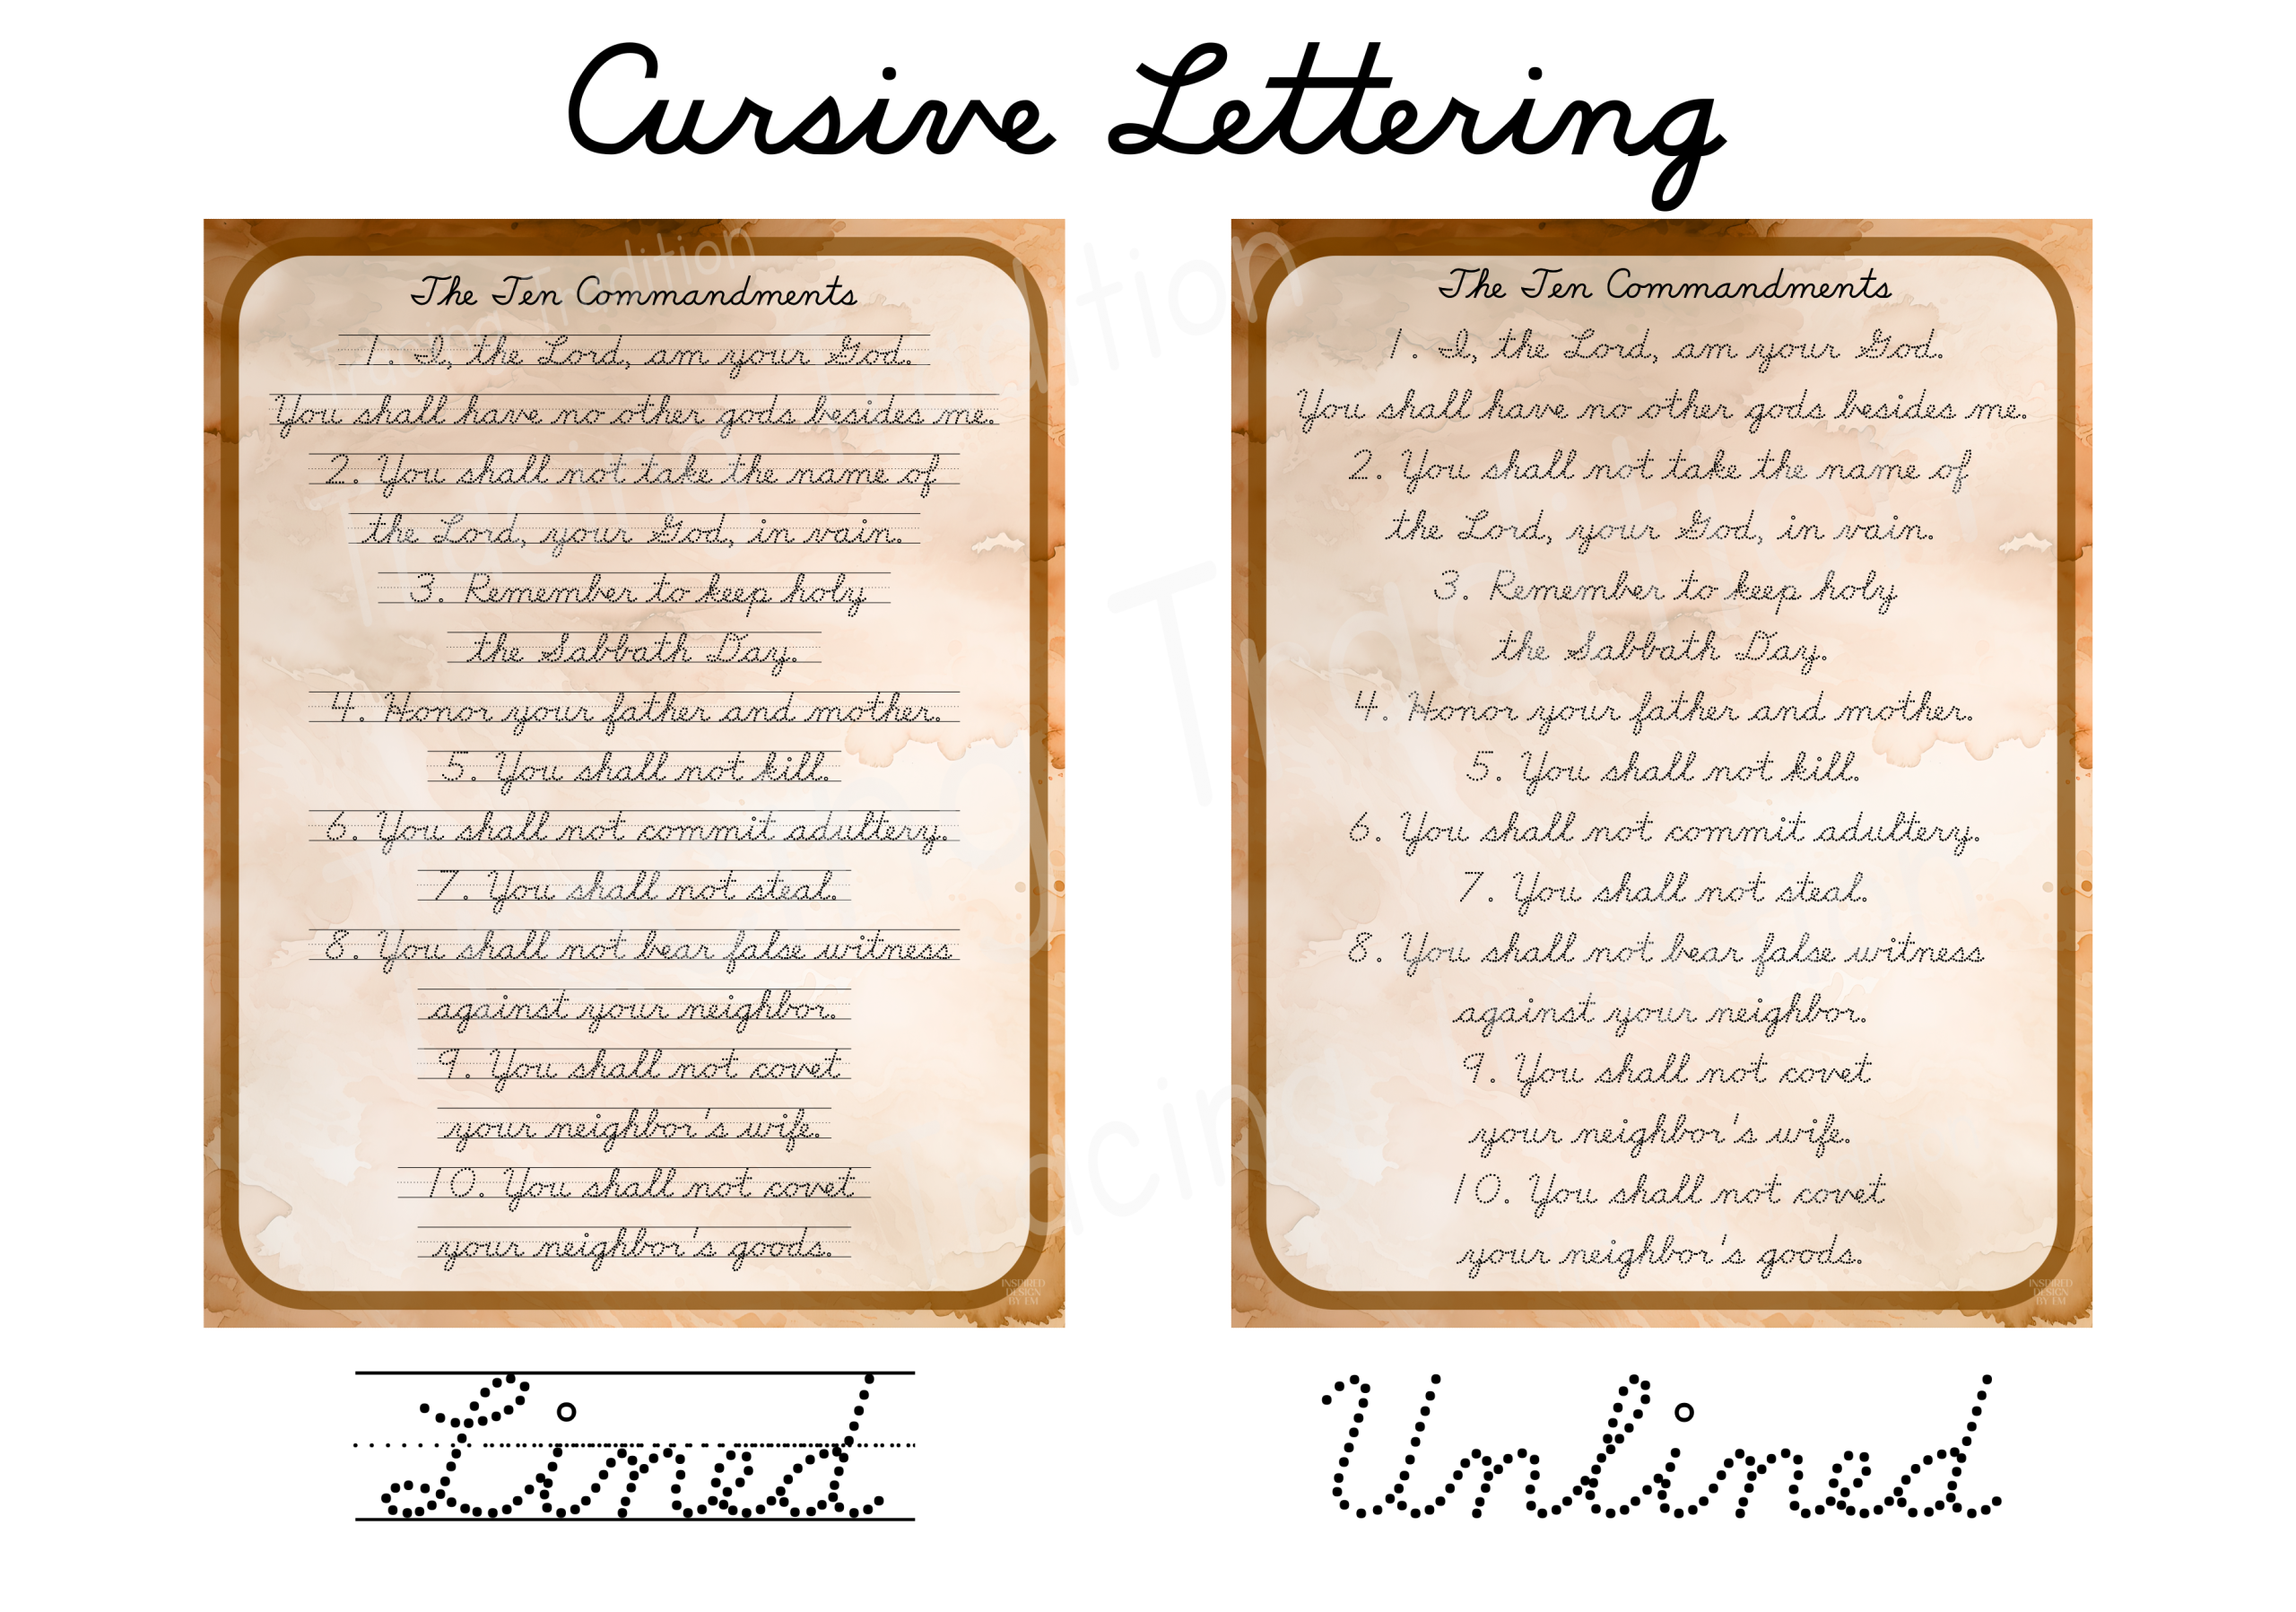 Cursive Lettering
The Ten Commandments
1. I, the Lord, am your God.
You shall have no other gods besides me.
2. You shall not take the name of
the Lord, your God, in vain.
3. Remember to keep holy
the Sabbath Day.
4. Honor your father and mother.
5. You shall not kill.
6. You shall not commit adultery.
7. You shall not steal.
8. You shall not bear false witness
against your neighbor.
9. You shall not covet
your neighbor's wife.
10. You shall not covet
your neighbor's goods.
INSPIRED
DESIGN
BY EM
Lined
The Ten Commandments
1. I, the Lord, am your God.
You shall have no other gods besides me.
2. You shall not take the name of
the Lord, your God, in vain.
3. Remember to keep holy
the Sabbath Day.
4. Honor your father and mother.
5. You shall not kill.
6. You shall not commit adultery.
7. You shall not steal.
8. You shall not bear false witness
against your neighbor.
9. You shall not covet
your neighbor's wife.
10. You shall not covet
your neighbor's goods.
INSPIRED
DESIGN
BY EM
Unlined
Tracing Tradition
Tracing Tradition
Tracing Tradition